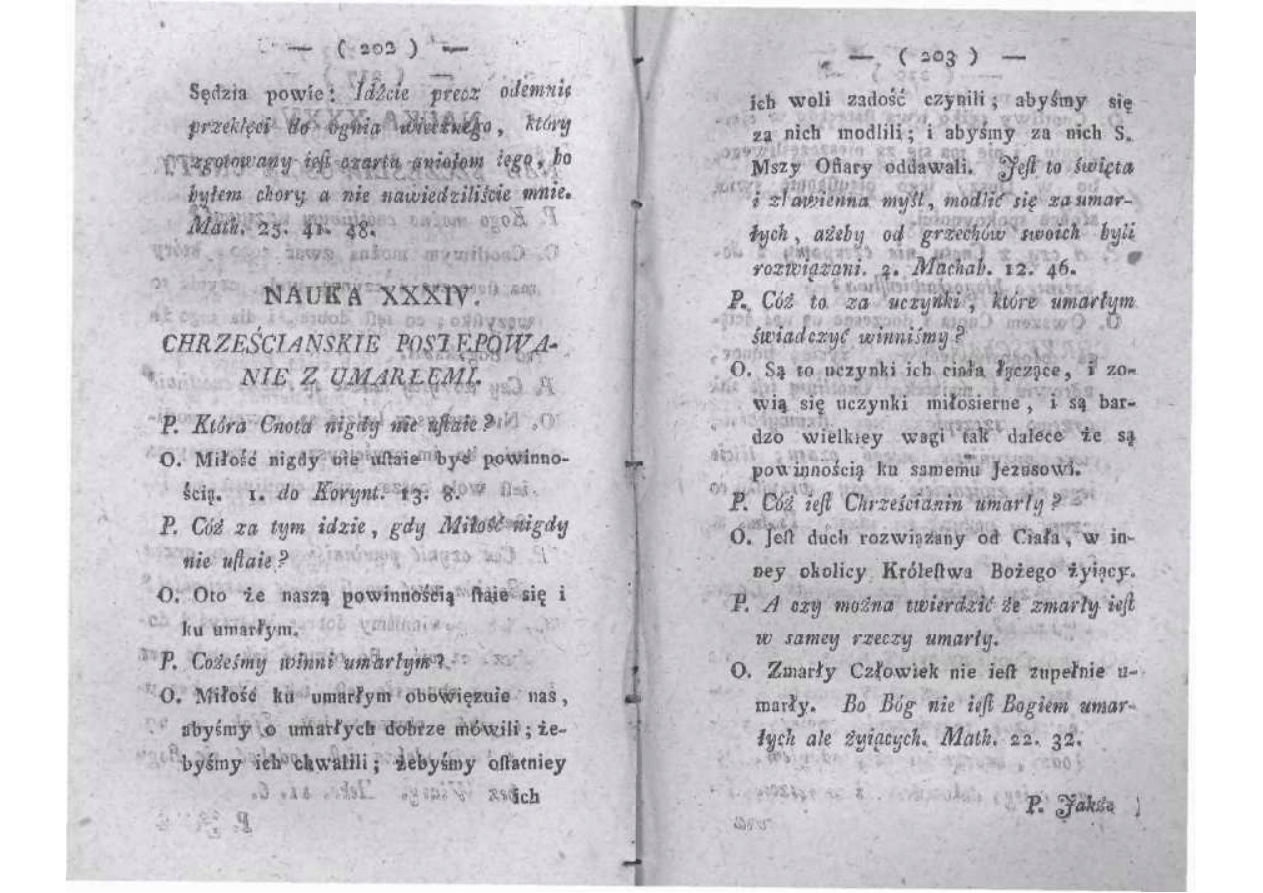 — ( 202 ) —
Sędzia powie: Idźcie precz odemnie
przeklęci do ognia wiecznego, który
zgotowany ieſt czartu aniołom iego, bo
byłem chory a nie nawiedziliście mnie.
Math. 25. 41. 48.
NAUKA XXXIV.
CHRZEŚCIANSKIE POSTĘPOWA-
NIE Z UMARŁEMI.
P. Która Cnota nigdy nie uſtaie?
O. Miłość nigdy nie uſtaie być powinno-
ścią. 1. do Korynt. 13. 8.
P. Cóż za tym idzie, gdy Miłość nigdy
nie uſtaie?
O. Oto że naszą powinnością ſtaie się i
ku umarłym.
P. Cożeśmy winni umarłym?
O. Miłość ku umarłym obowięzuie nas,
abyśmy o umarłych dobrze mówili; że-
byśmy ich chwalili; żebyśmy oſtatniey
ich
— ( 203 ) —
ich woli zadość czynili; abyśmy się
za nich modlili; i abyśmy za nich S.
Mszy Ofiary oddawali. Jeſt to święta
i zbawienna myśl, modlić się za umar-
łych, ażeby od grzechów swoich byli
rozwiązani. 2. Machab. 12. 46.
P. Cóż to za uczynki, które umarłym
świadczyć winniśmy?
O. Są to uczynki ich ciała łączące, i zo-
wią się uczynki miłosierne, i są bar-
dzo wielkiey wagi tak dalece że są
powinnością ku samemu Jezusowi.
P. Cóż ieſt Chrześcianin umarły?
O. Jeſt duch rozwiązany od Ciała, w in-
ney okolicy Króleſtwa Bożego żyiący.
P. A czy można twierdzić że zmarły ieſt
w samey rzeczy umarły.
O. Zmarły Człowiek nie ieſt zupełnie u-
marły. Bo Bóg nie ieſt Bogiem umar-
łych ale żyiących. Math. 22. 32.
P. Jakże